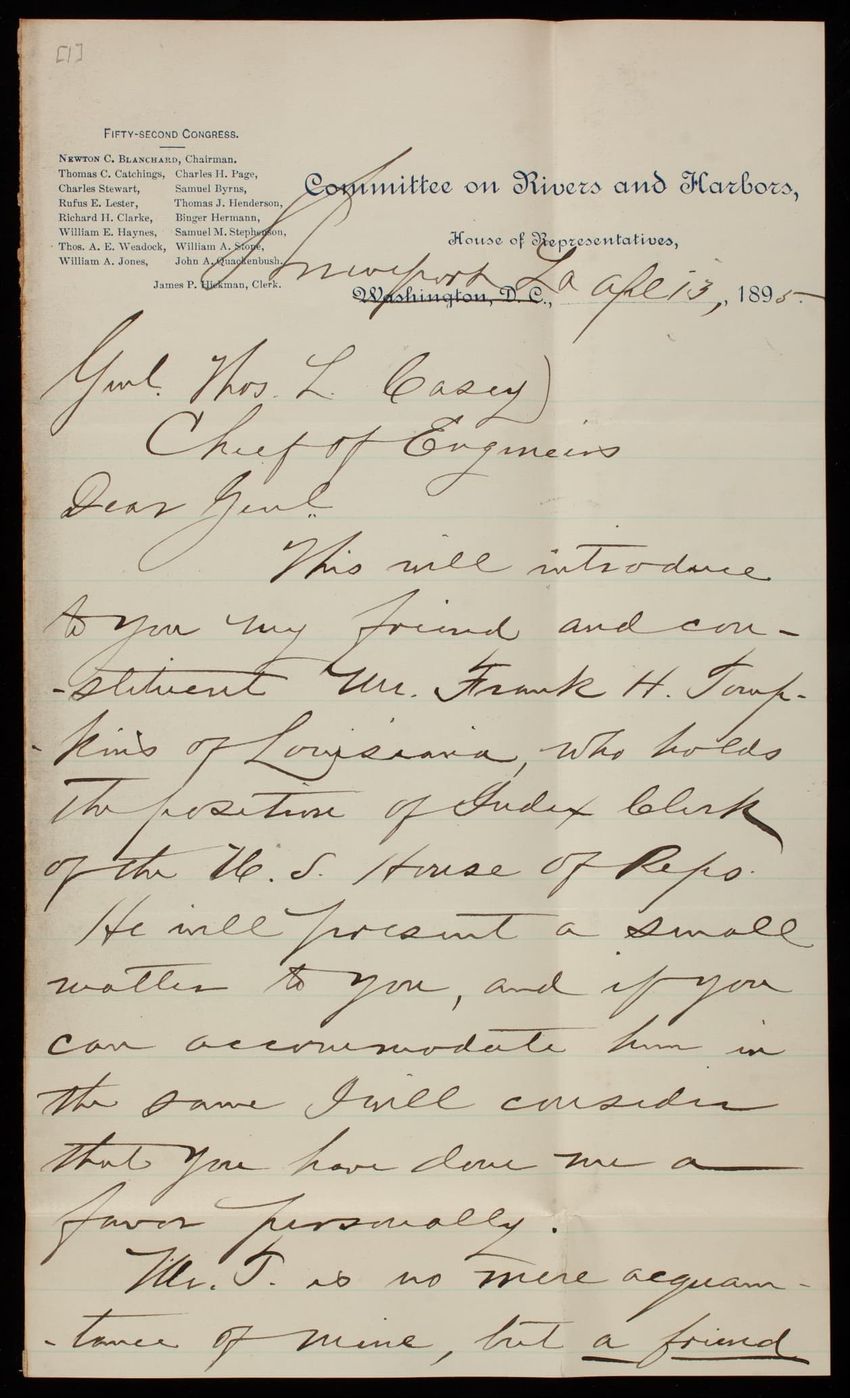 [1]
FIFTY-SECOND CONGRESS.
NEWTON C. BLANCHARD, Chairman.
Thomas C. Catchings, Charles H. Page,
Charles Stewart, Samuel Byrns,
Rufus E. Lester, Thomas J. Henderson,
Richard H. Clarke, Binger Hermann,
William E. Haynes, Samuel M. Stephenson,
Thos. A. E. Weadock, William A. Stone,
William A. Jones, John A. Quackenbush.
James P. Hickman, Clerk.
Committee on Rivers and Harbors,
House of Representatives,
Washington, D. C., La Apl 13, 1895.
Genl. Thos. L. Casey)
Chief of Engineers
Dear Genl.
This will introduce
to you my friend and con-
-stituent Mr. Frank H. Tomp-
-kins of Louisiana, who holds
the position of Index Clerk
of the U. S. House of Reps.
He will present a small
matter to you, and if you
can accommodate him in
the same I will consider
that you have done me a
favor personally.
Mr. T. is no mere acquain-
-tance of mine, but a friend